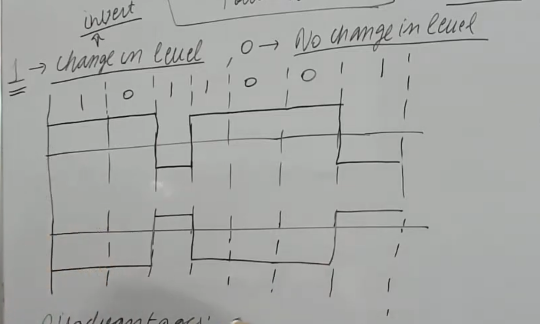 invert
1 → change in level , 0 → No change in level
1 0 1 1 0 0 1
Disadvantages: